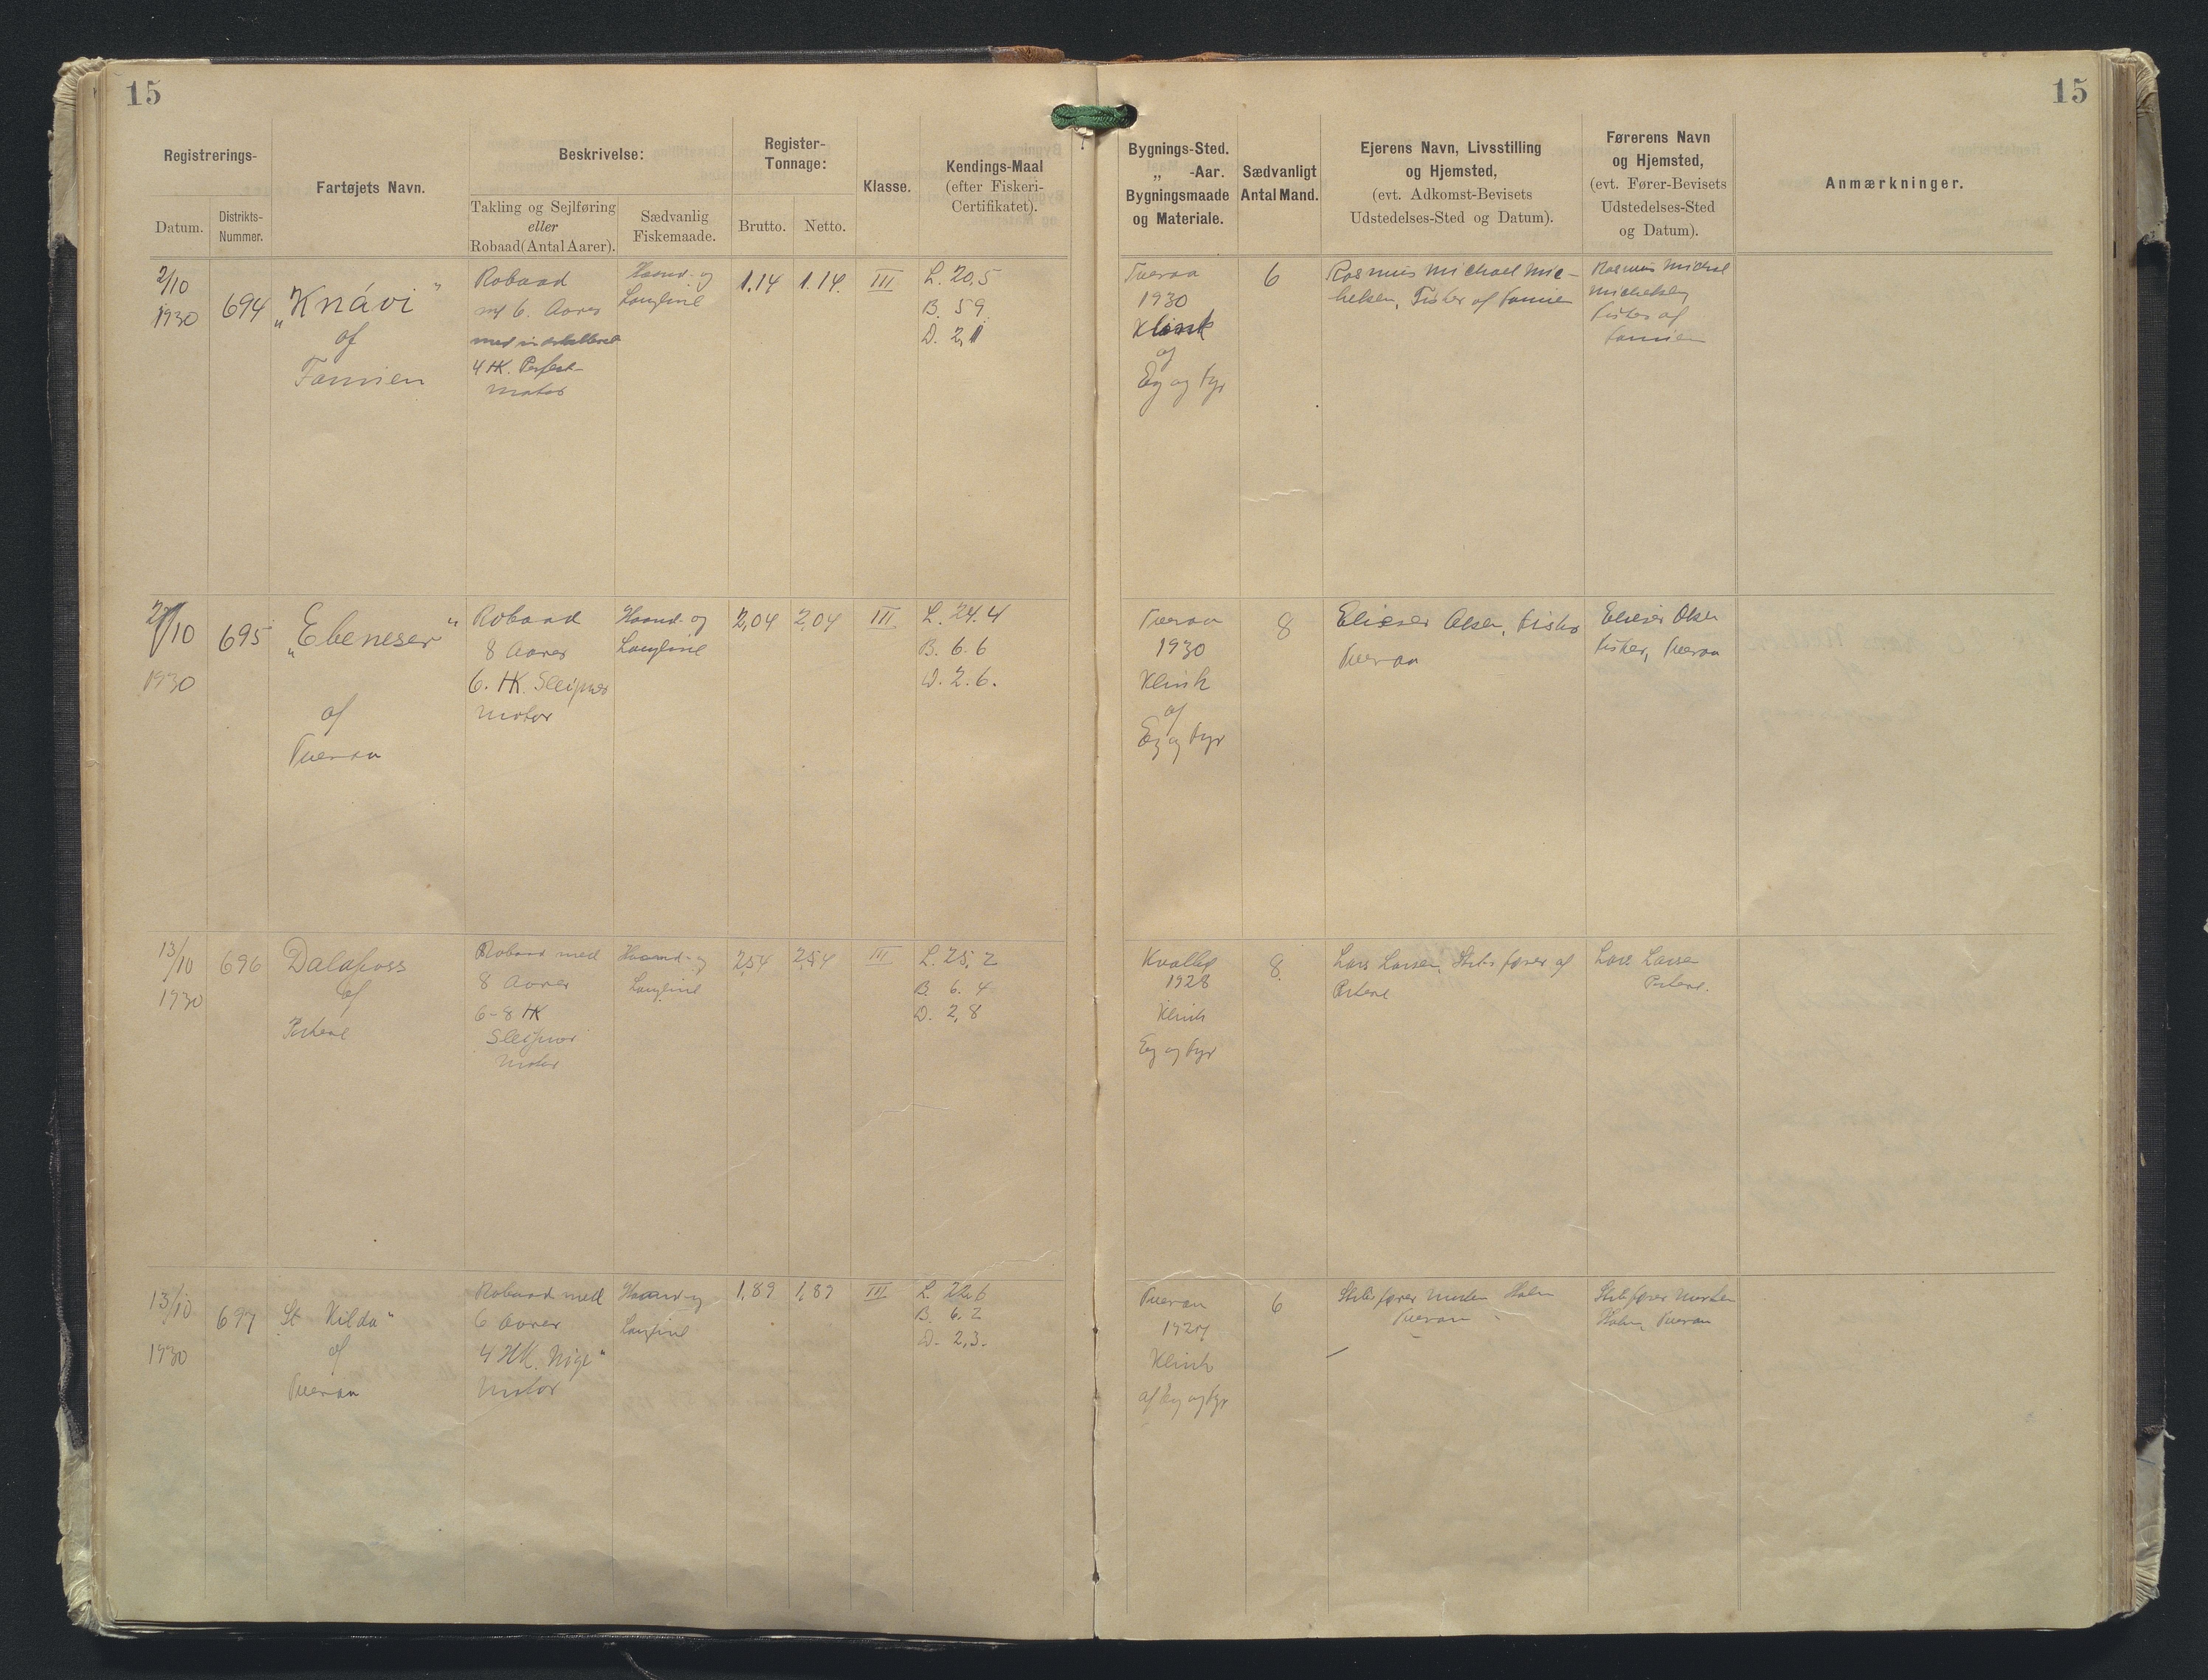 15
15
Registrerings-
Datum.
Distrikts-
Nummer.
Fartøjets Navn.
Beskrivelse:
Takling og Sejlføring
eller
Robaad (Antal Aarer).
Sædvanlig
Fiskemaade.
Register-
Tonnage:
Brutto.
Netto.
Klasse.
Kendings-Maal
(efter Fiskeri-
Certifikatet).
Bygnings-Sted.
„ -Aar.
Bygningsmaade
og Materiale.
Sædvanligt
Antal Mand.
Ejerens Navn, Livsstilling
og Hjemsted,
(evt. Adkomst-Bevisets
Udstedelses-Sted og Datum).
Førerens Navn
og Hjemsted,
(evt. Fører-Bevisets
Udstedelses-Sted
og Datum).
Anmærkninger.
2/10
1930
694
„Knávi"
af
Famien
Robaad
m/ 6. Aarer
med
4 HK. Perfect-
motor
Haand- og
Langline
1.14
1.14.
III
L. 20,5
B. 5 9
D. 2,1
Tveraa
1930
Klink
af
Eg og Fyr
6
Rasmus Michael Mic-
helsen, Fisker af Famien
Rasmus Michael
Michelsen,
Fisker af
Famien
/10
1930
695
„Ebeneser"
af
Tveraa
Robaad
8 Aarer
6. HK. Sleipner
motor
Haand- og
Langline
2,04
2,04
III
L. 24.4
B. 6.6
D. 2.6.
Tveraa
1930
Klink
af
Eg og Fyr
8
Elieser Olsen, Fisker
Tveraa
Elieser Olsen
Fisker, Tveraa
13/10
1930
696
Dalafoss
af
Porkere
Robaad med
8 Aarer
6-8 HK
Sleipner
motor
Haand- og
Langline
2,54
2,54
III
L. 25,2
B. 6.4
D. 2,8
Kvalbø
1928
Klink
Eg og Fyr
8
Lars Larsen, Skibsfører af
Porkere
Lars Larsen
Porkere.
13/10
1930
697
St Kilda"
af
Tveraa
Robaad med
6 Aarer
4 HK.
motor
Haand- og
Langline
1,89
1,89
III
L. 22,6
B. 6.2
D. 2,3.
Tveraa
Klink
af Eg og Fyr
6
Skibsfører Morten Holm
Tveraa
Skibsfører Morten
Holm, Tveraa